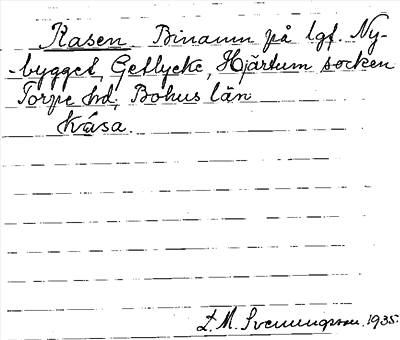 Kasen. Binamn på lgf. Ny-
-bygget, Getlycke, Hjärtum socken
Torpe hd, Bohus län
Kåsa.
L. M. Svenungsson. 1935.